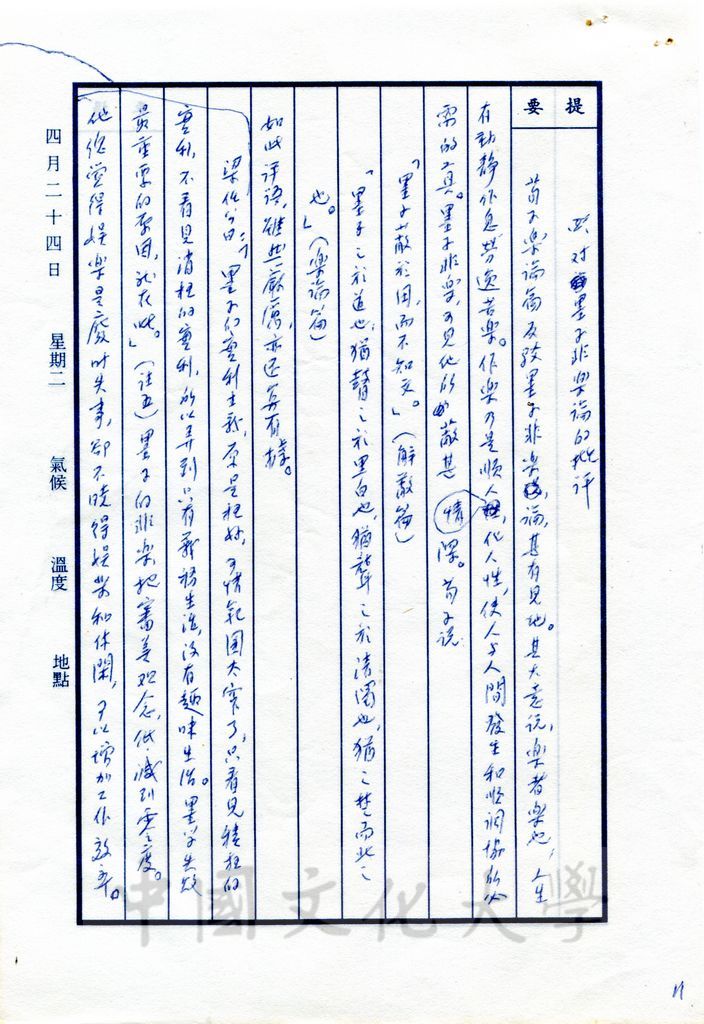 提要
四對墨子非樂論的批評
荀子樂論篇反駁墨子非樂論,甚有見地。其大意說,樂者樂也,人生
有動靜作息勞逸苦樂。作樂乃是順人情,化人性,使人与人間發生和順調協所必
需的工具。墨子非樂,可見他的蔽甚深。荀子說
「墨子蔽於用,而不知文。」(解蔽篇)
「墨子之於道也,猶瞽之於黑白也,猶聾之於清濁也,猶之楚而北之
也。」(樂論篇)
如此評語,雖些嚴厲,亦还算有據。
梁任公曰:「墨子的實利主義,原是極好,可惜範圍太窄了,只看見積極的
實利,不看見消極的實利,所以弄到只有義務生活,沒有趣味生活。墨學失敗
最重要的原因,就在此。」(註五)墨子的非樂把審美观念,低減到零度。
他總覺得娛樂是廢时失事,卻不曉得娛樂和休閑,可以增加工作效率。
四月二十四日 星期二 氣候 溫度 地點
中國文化大學
11